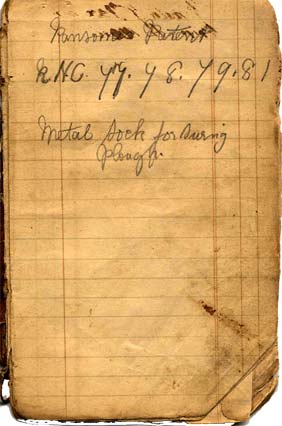 Ransomes Patent
R.N.C. 77. 78. 79. 81
Metal Sock for
Plough.